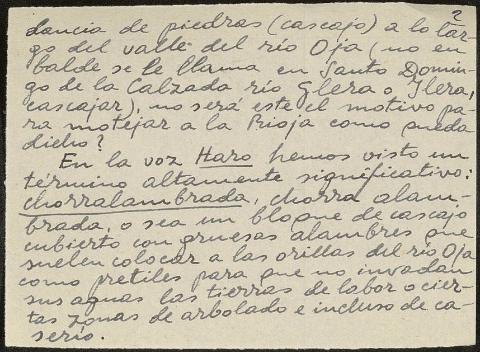 2
dancia de piedras (cascajo) a lo lar-
go del valle del río Oja (no en
balde se le llama en Santo Domin-
go de la Calzada río Glera o Ilera,
cascajar), no será este el motivo pa-
ra motejar a la Rioja como queda
dicho?
En la voz Haro hemos visto un
término altamente significativo:
chorralambrada, chorra alam-
brada, o sea un bloque de cascajo
cubierto con gruesas alambres que
suelen colocar a las orillas del río Oja
como pretiles para que no invadan
sus aguas las tierras de labor o cier-
tas zonas de arbolado e incluso de ca-
serío.